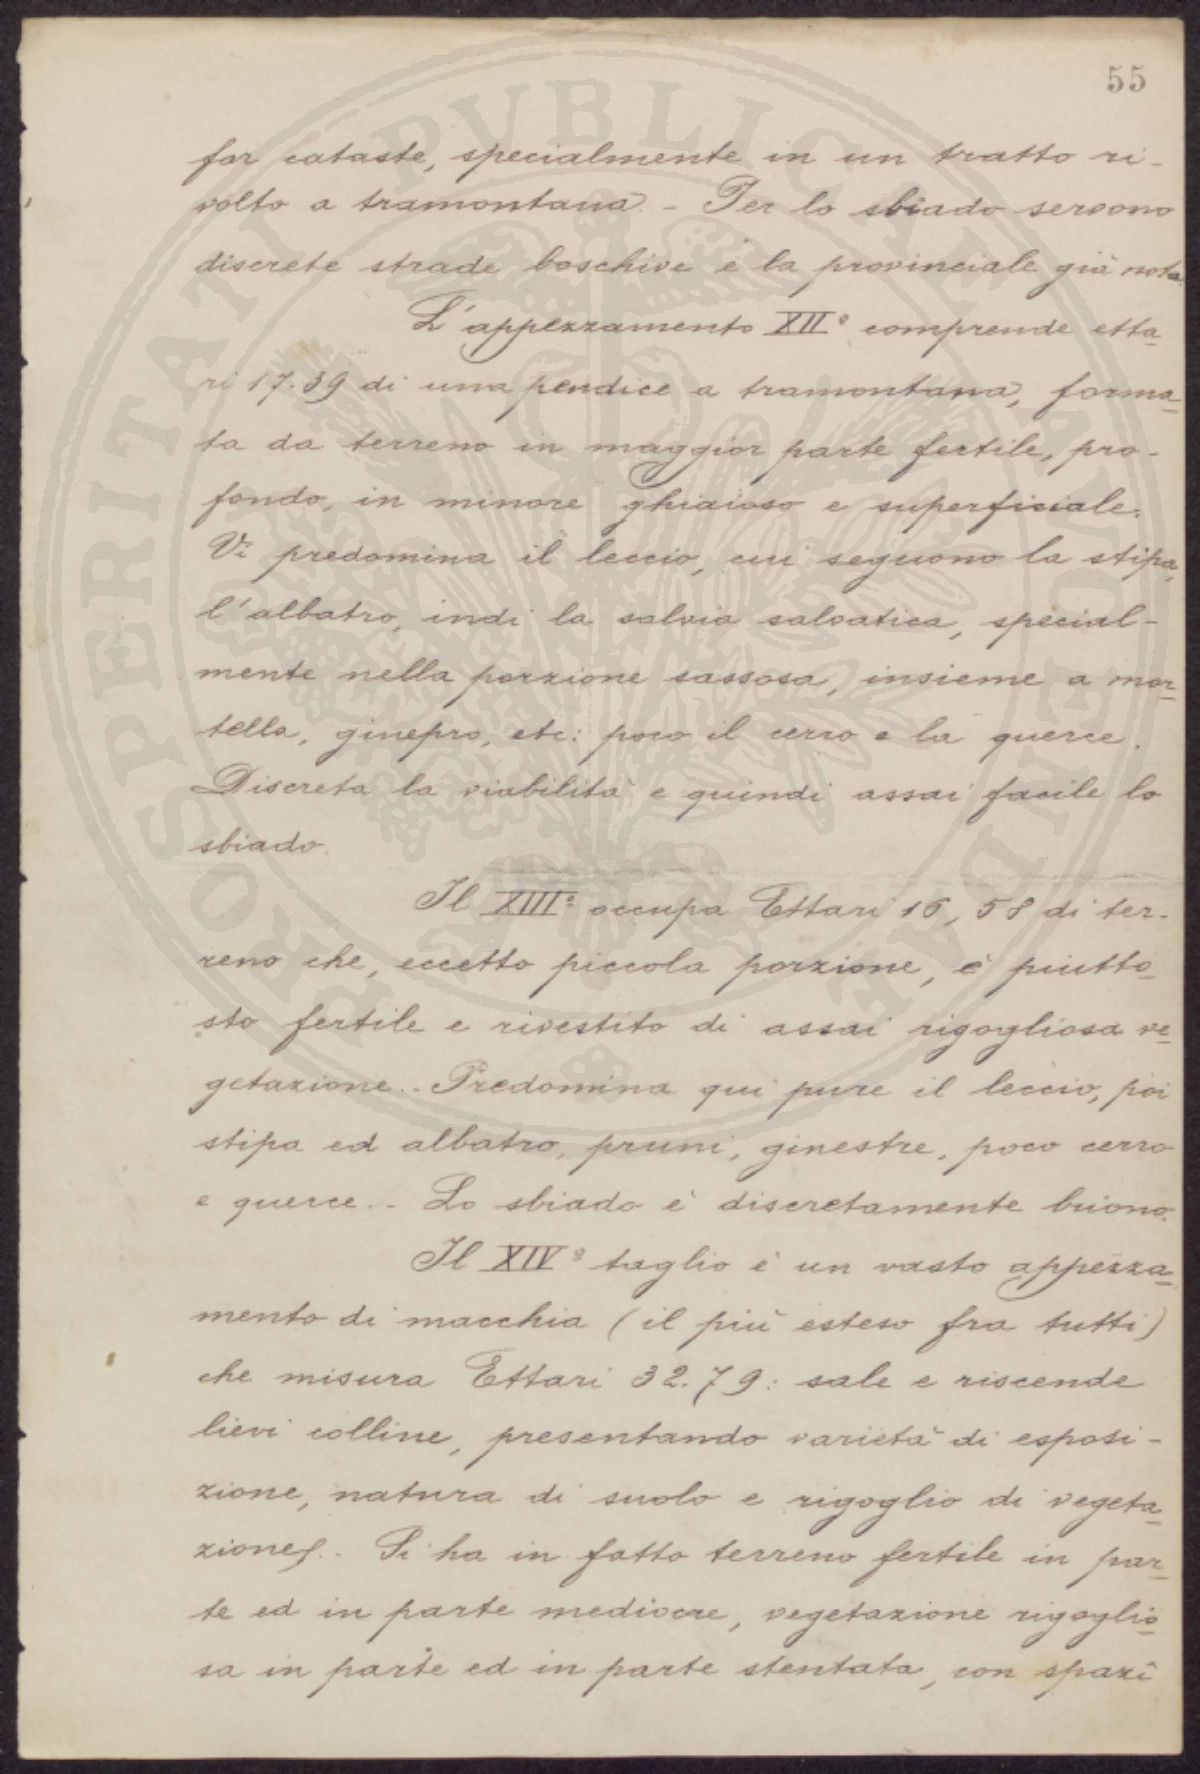 55
far cataste, specialmente in un tratto ri-
volto a tramontana. - Per lo sbiado servono
discrete strade boschive e la provinciale già nota.
L'appezzamento XII° comprende etta-
ri 17.39 di una pendice a tramontana, forma-
ta da terreno in maggior parte fertile, pro-
fondo, in minore ghiaioso e superficiale.
Vi predomina il leccio, cui seguono la stipa,
l'albatro, indi la salvia salvatica, special-
mente nella porzione sassosa, insieme a mor-
tella, ginepro, etc: poco il cerro e la querce.
Discreta la viabilità e quindi assai facile lo
sbiado.
Il XIII° occupa Ettari 16,58 di ter-
reno che, eccetto piccola porzione, è piutto-
sto fertile e rivestito di assai rigogliosa ve-
getazione. - Predomina qui pure il leccio, poi
stipa ed albatro, pruni, ginestre, poco cerro
e querce. - Lo sbiado è discretamente buono.
Il XIV° taglio è un vasto appezza-
mento di macchia (il più esteso fra tutti)
che misura Ettari 32.79: sale e riscende
lievi colline, presentando varietà di esposi-
zione, natura di suolo e rigoglio di vegeta-
zione. - Si ha in fatto terreno fertile in par-
te ed in parte mediocre, vegetazione rigoglio-
sa in parte ed in parte stentata, con spazi
PROSPERITATI PUBLICAE AUGENDAE